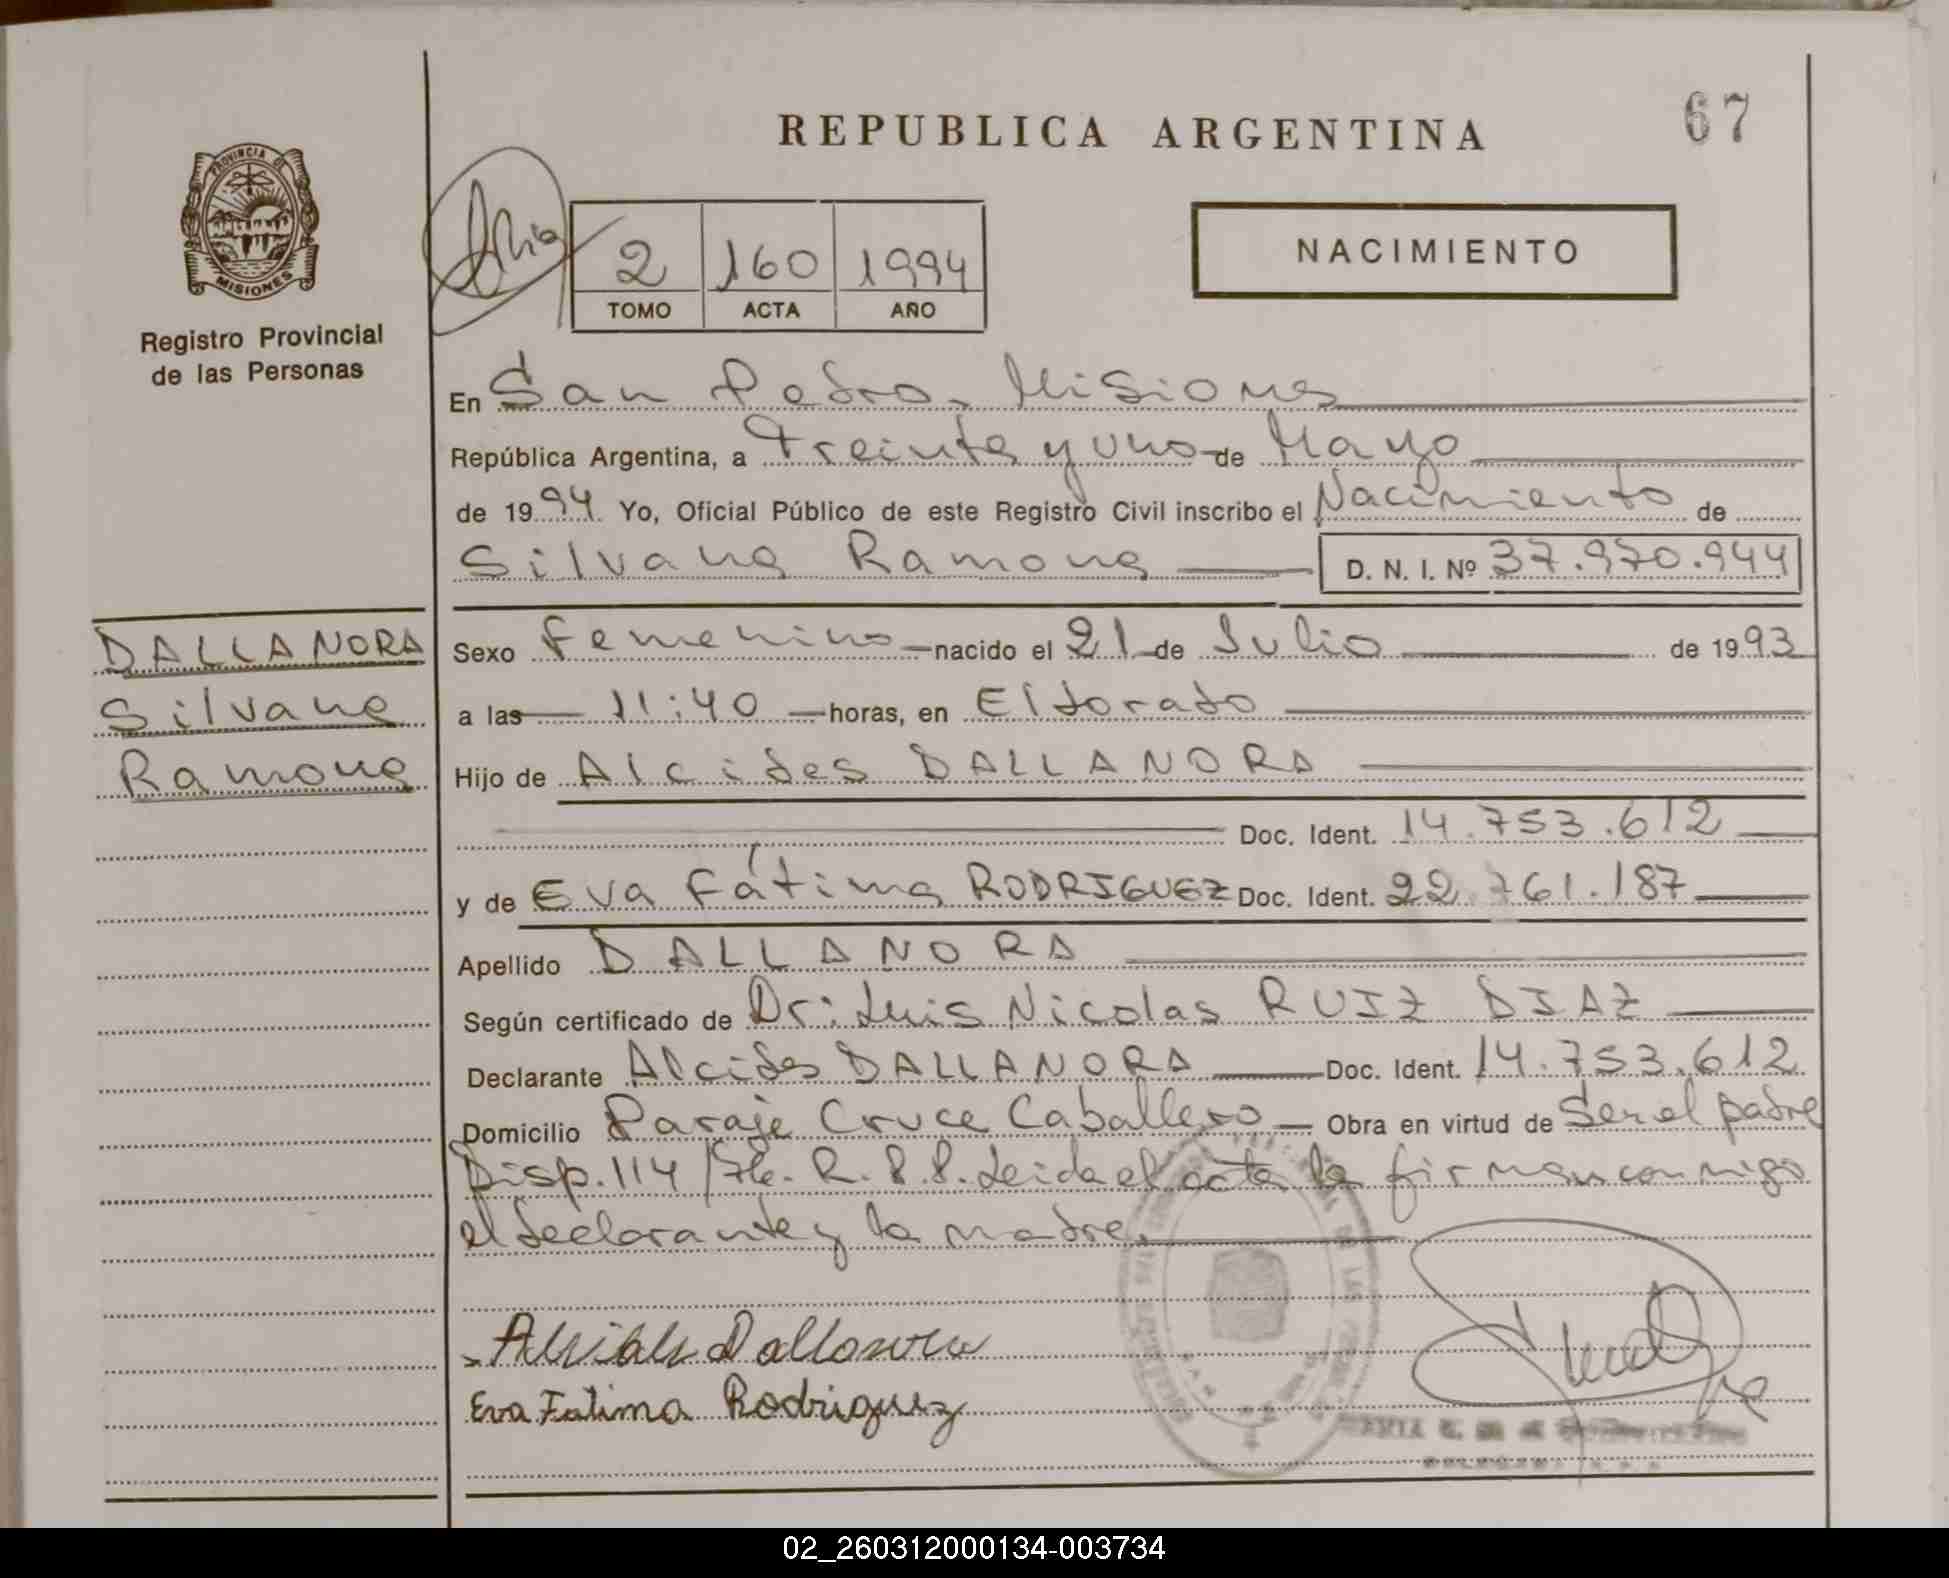 REPUBLICA ARGENTINA
67
PROVINCIA DE
MISIONES
Registro Provincial
de las Personas
2 160 1994
TOMO ACTA AÑO
NACIMIENTO
En San Pedro, Misiones
República Argentina, a Treinta y uno de Mayo
de 1994 Yo, Oficial Público de este Registro Civil inscribo el Nacimiento de
Silvana Ramona D. N. I. Nº 37.970.944
DALLANORA
Silvana
Ramona
Sexo Femenino nacido el 21 de Julio de 1993
a las 11:40 horas, en Eldorado
Hijo de Alcides DALLANORA
Doc. Ident. 14.753.612
y de Eva Fátima RODRIGUEZ Doc. Ident. 22.761.187
Apellido DALLANORA
Según certificado de Dr: Luis Nicolas RUIZ DIAZ
Declarante Alcides DALLANORA Doc. Ident. 14.753.612
Domicilio Paraje Cruce Caballero Obra en virtud de Ser el padre
Disp. 114/76. R.P.P. Leida el acta la firman conmigo
el declarante y la madre.
Alcides Dallanora
Eva Fatima Rodriguez
02_260312000134-003734